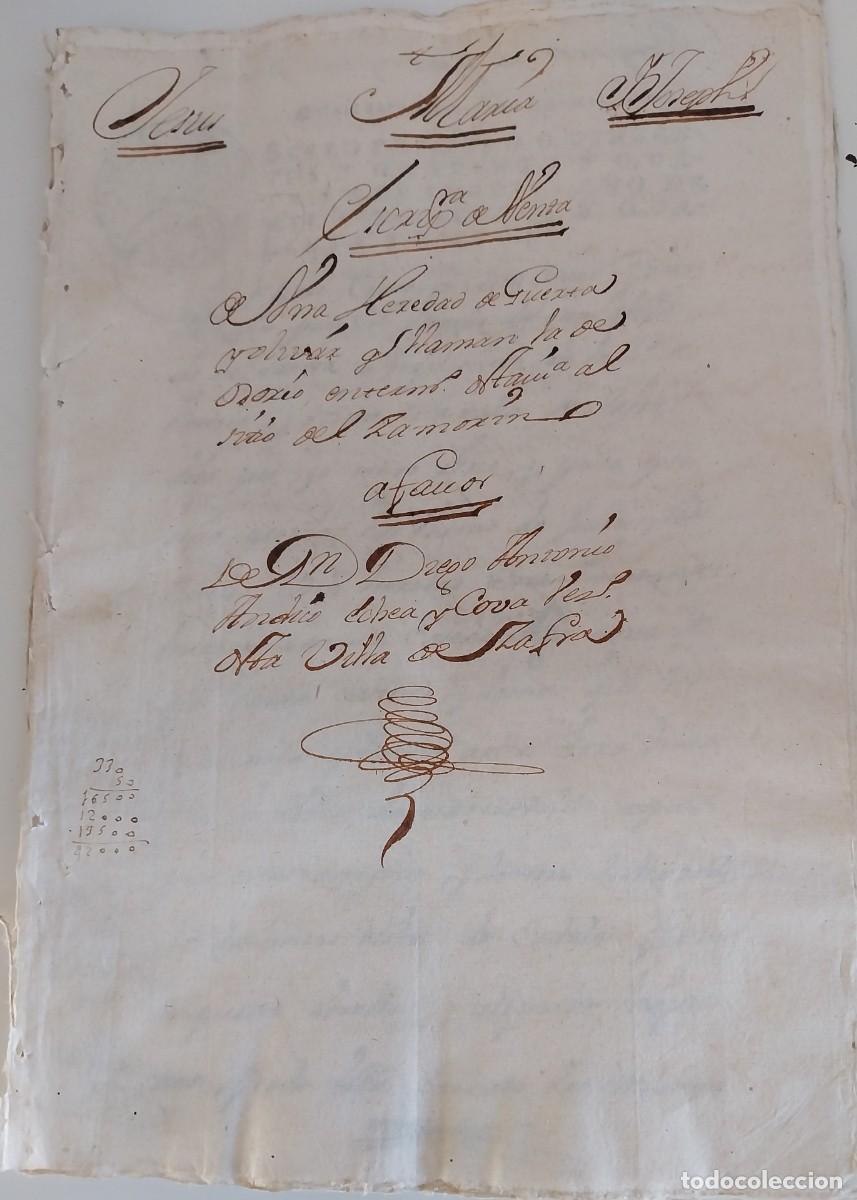 Jesus Maria y Joseph
Scrip^ra de Venta
de Una Heredad de Guerta
y olivár q^e llaman la de
Osorio en term^o desta Vi^a al
sitio del Zamorin
a favor
De Dn. Diego Antonio
y Cova Vez^o
desta Villa de Zafra
330
50
16500
12000
13500
42000
todocoleccion